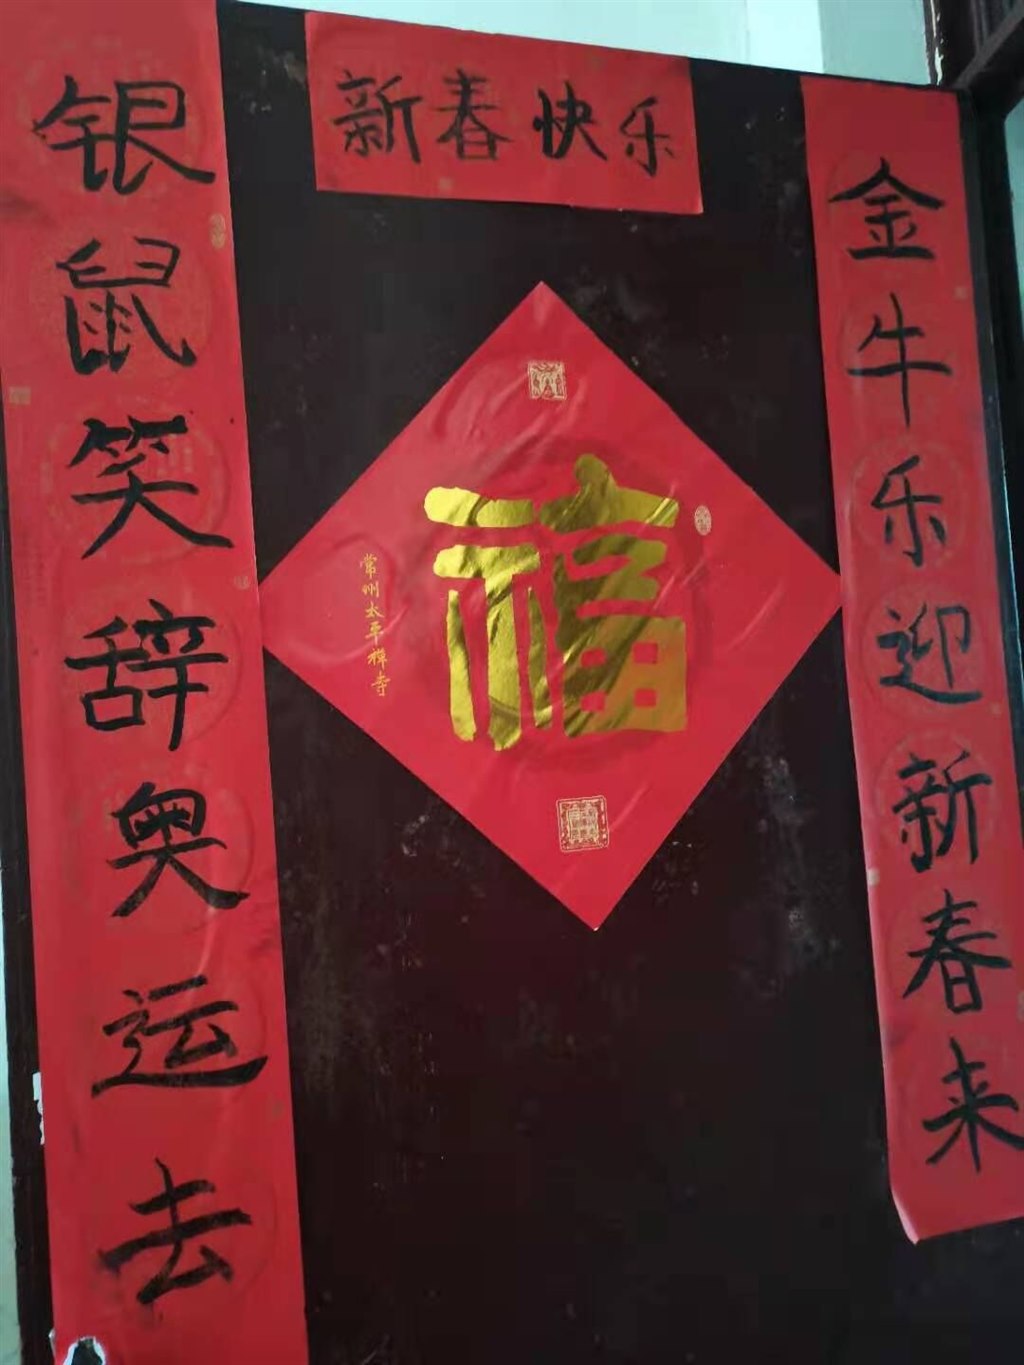 新春快乐
银鼠笑辞奥运去
金牛乐迎新春来
福
常州太平禅寺